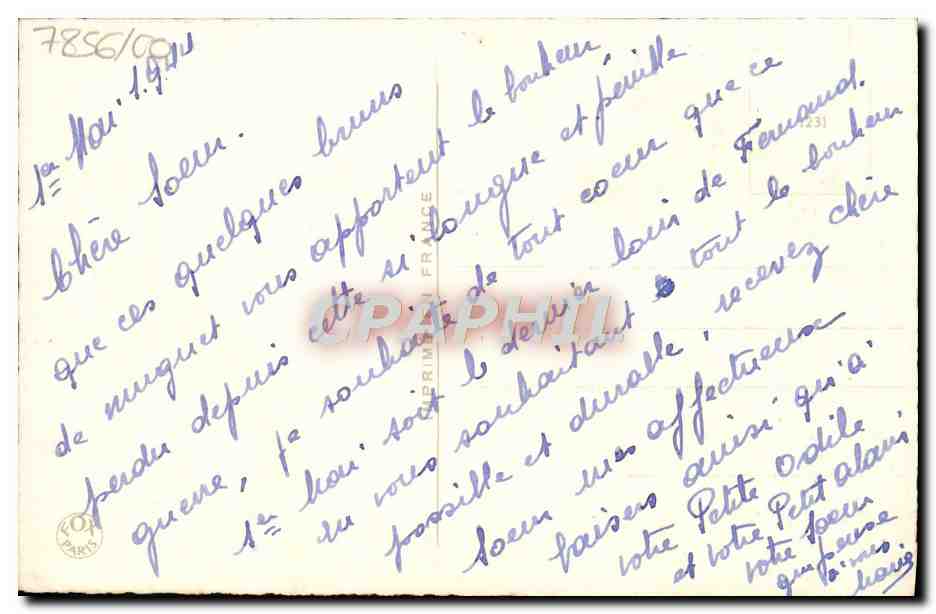 7856/00
1er Mai 1944
Chère Soeur.
que ces quelques bruns
de muguet vous apportent le bonheur
perdu depuis cette si longue et pénible
guerre, je souhaite de tout coeur que ce
1er Mai soit le dernier loin de Fernand.
en vous souhaitant tout le bonheur
possible et durable, recevez chère
Soeur mes affectueux
baisers ainsi qu'à
votre Petite Odile
et votre Petit alain
votre Soeur
qui pense
à vous
IMPRIMÉ EN FRANCE
1231
FOX
PARIS
CPAPHIL